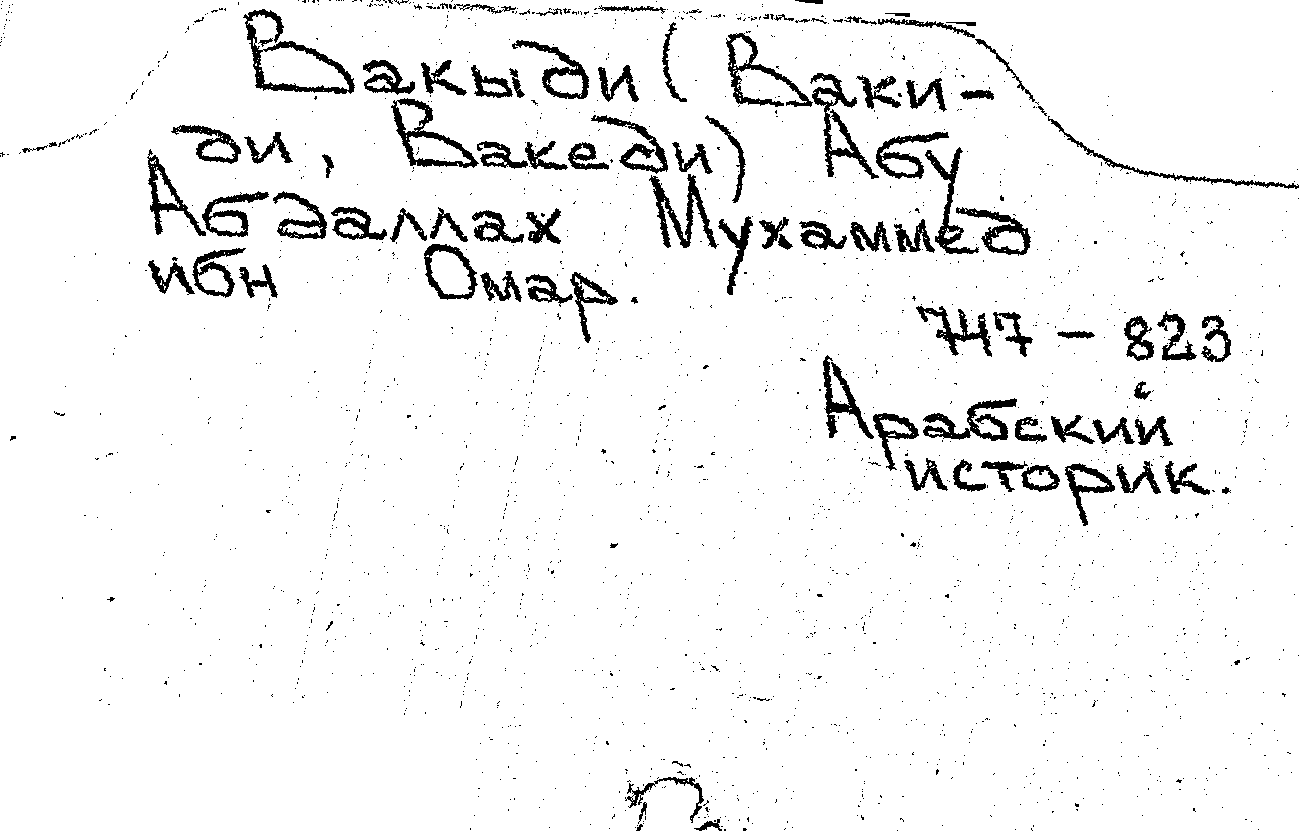 Вакыди (Ваки-
ди, Вакеди) Абу
Абдаллах Мухаммед
ибн Омар.
747 - 823
Арабский
историк.